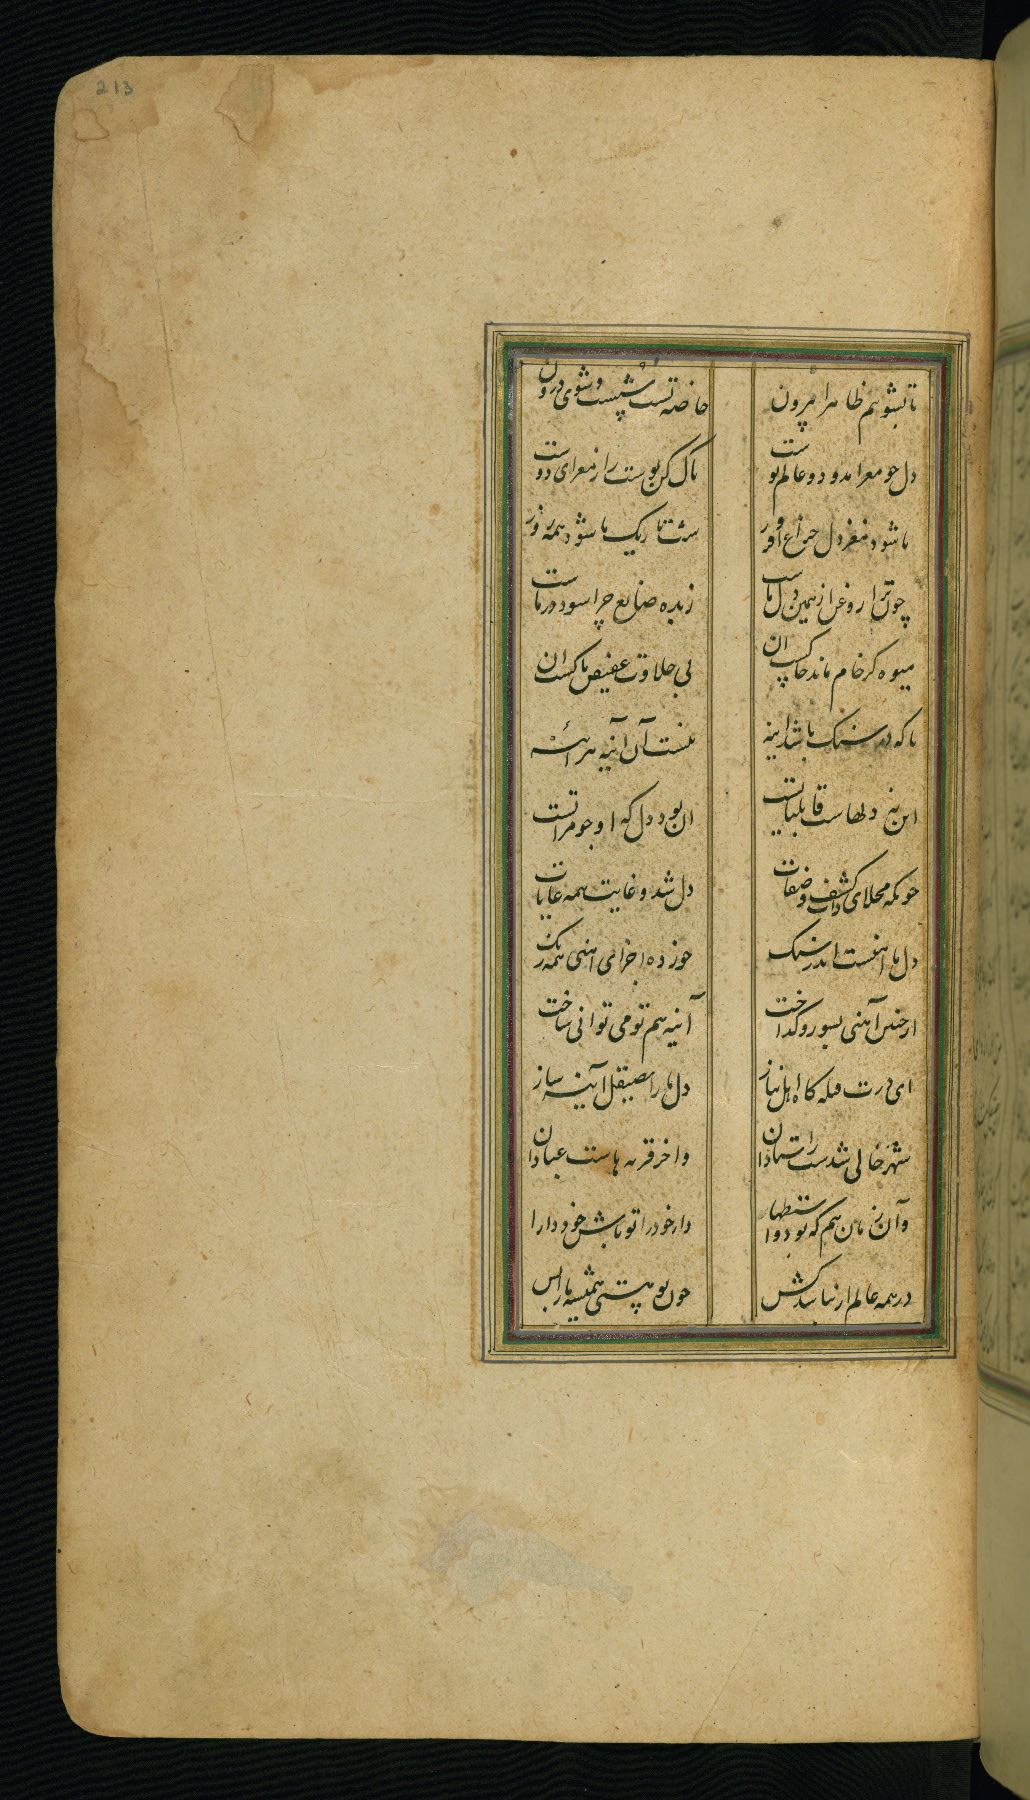 213
تا بشویم ظاهرا بیرون
خاصه تست شست و شوی درون
دل چو مغز آمد و دو عالم پوست
پاک کن پوست را ز مغز ای دوست
تا شود مغز دل چراغ افروز
شب تاریک ما شود همه روز
چون ترا روغن از همین دل ماست
زبده صانع چرا سود در ماست
میوه کر خام ماند خاک بسان
بی حلاوت عفیص ناکس ان
تا که در سنک باشد اینه
نیست آن آینه هر آئینه
این نه دلهاست قابلیاتست
ان بود دل که او جو مراتست
چونکه مجلای کشف ذات و صفات
دل شد و غایت همه غایات
دل ما اهنست اندر سنک
خورده اجزای اهنی همه زنک
از چنین آهنی بسوز و کداخت
آینه هم تو می توانی ساخت
ای درت قبله کاه اهل نیاز
دل ما را بصیقل آینه ساز
شهر خالی شدست ز استادان
واخر قریه هاست عبادان
وآن زمان هم که بود
دار خود را تو باش خود دارا
در همه عالم ار نباشد کس
چون تو هستی همیشه ما را بس